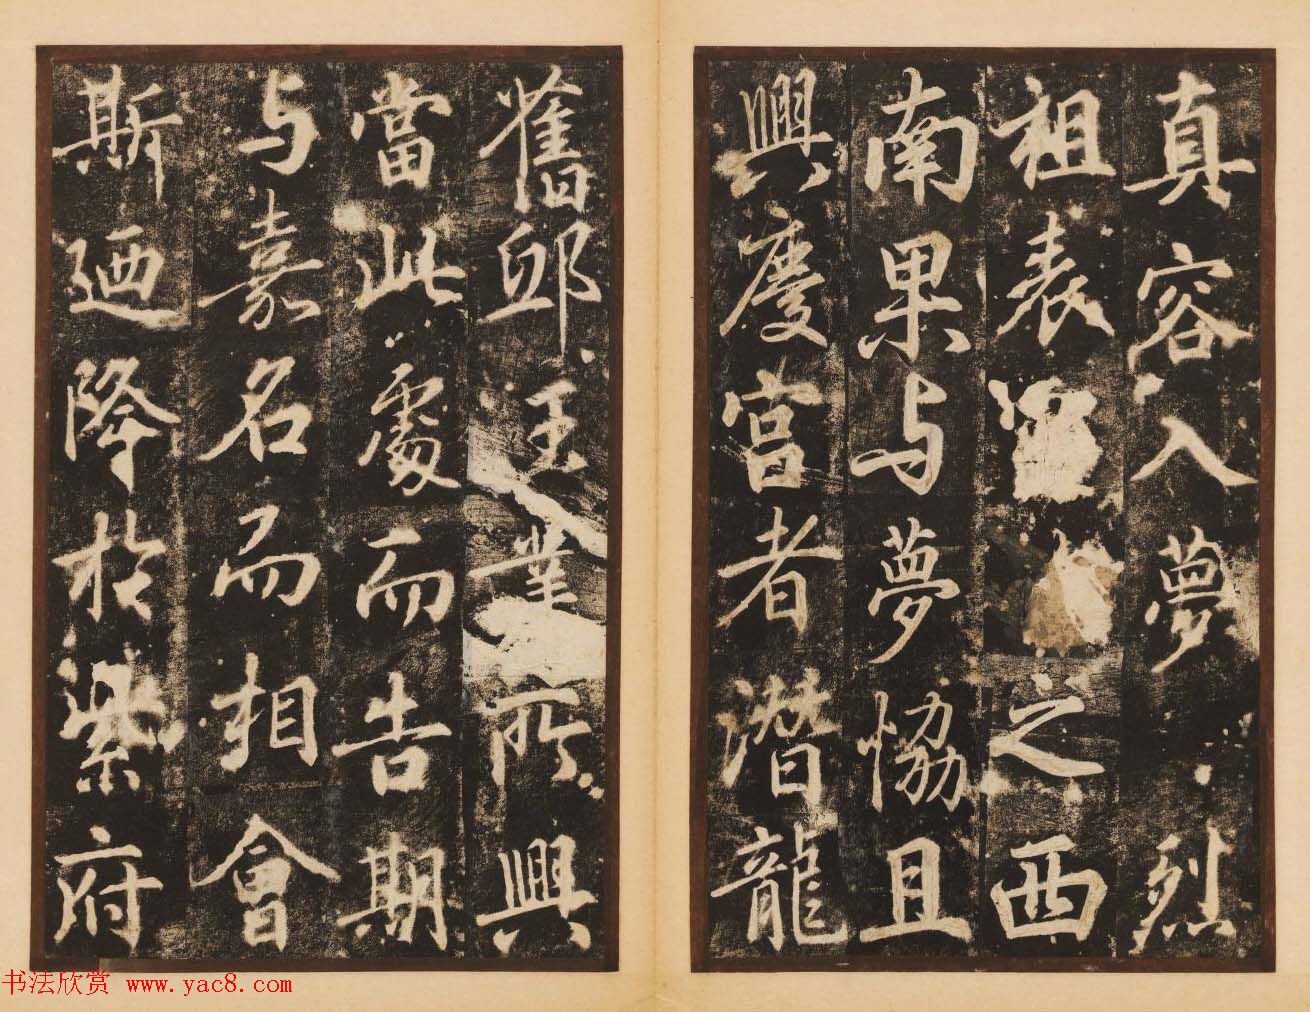 真容入夢烈
祖表之西
南果与夢恊且
興慶宫者潜龍
舊邸王業所興
當此處而告期
与嘉名而相會
斯廼降於紫府
书法欣赏 www.yac8.com